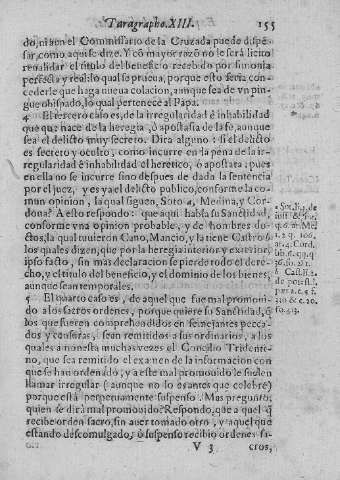 Paragrapho. XIII. 155
do, ni aun el Commissario de la Cruzada puede dispē-
sar, como aqui se dize. Y cō mayor razō no le será licito
reualidar el titulo del beneficio recebido por simonia
perfecta y real: lo qual se prueua, porque esto seria con-
cederle que haga nueua colacion, aunque sea de vn pin-
gue obispado, lo qual pertenece al Papa.
4 El tercero caso es, de la irregularidad e inhabilidad
que que nace de la heregia, ò apostasia de la fe, aunque
sea el delicto muy secreto. Dira alguno: si el delicto
es secreto y oculto, como incurre en la pena de la ir-
regularidad è inhabilidad el heretico, ò apostata: pues
en ella no se incurre sino despues de dada la sentencia
por el juez, y es ya el delicto publico, conforme la co-
mun opinion, la qual siguen, Soto a, Medina, y Cor-
doua? A esto respondo: que aqui habla su Sanctidad,
conforme vna opinion probable, y de hombres do-
ctos, la qual tuuieron Cano, Mancio, y la tiene Castro b
los quales dizen, que por la heregia interior y exterior,
ipso facto, sin mas declaracion se pierde todo el dere-
cho, y el titulo del beneficio, y el dominio de los bienes,
aunque sean temporales.
5 El quarto caso es, de aquel que fue mal promoui-
do a los sacros ordenes, porque quiere su Sanctidad, q̃
los que fueren comprehendidos en semejantes pecca-
dos y censuras, sean remitidos a sus ordinarios, a los
quales amonesta muchas vezes el Concilio Tridenti-
no, que sea remitido el examen de la informacion con
que se han ordenado, y a este mal promouido le suelen
llamar irregular (aunque no lo es antes que celebre)
porque està perpetuamente suspenso. Mas pregunto,
quien se dirà mal promouido? Respondo, que a quel q̃
recibe orden sacro, sin auer tomado otro, y aquel que
estando descomulgado, ò suspenso recibio ordenes sa-
V 3 cros,
a Sot. li. 1. de
iust. & iur.
q. 6. Med.
1. 2. q. 106.
ar. 4. Cord.
b Cast. li. 2.